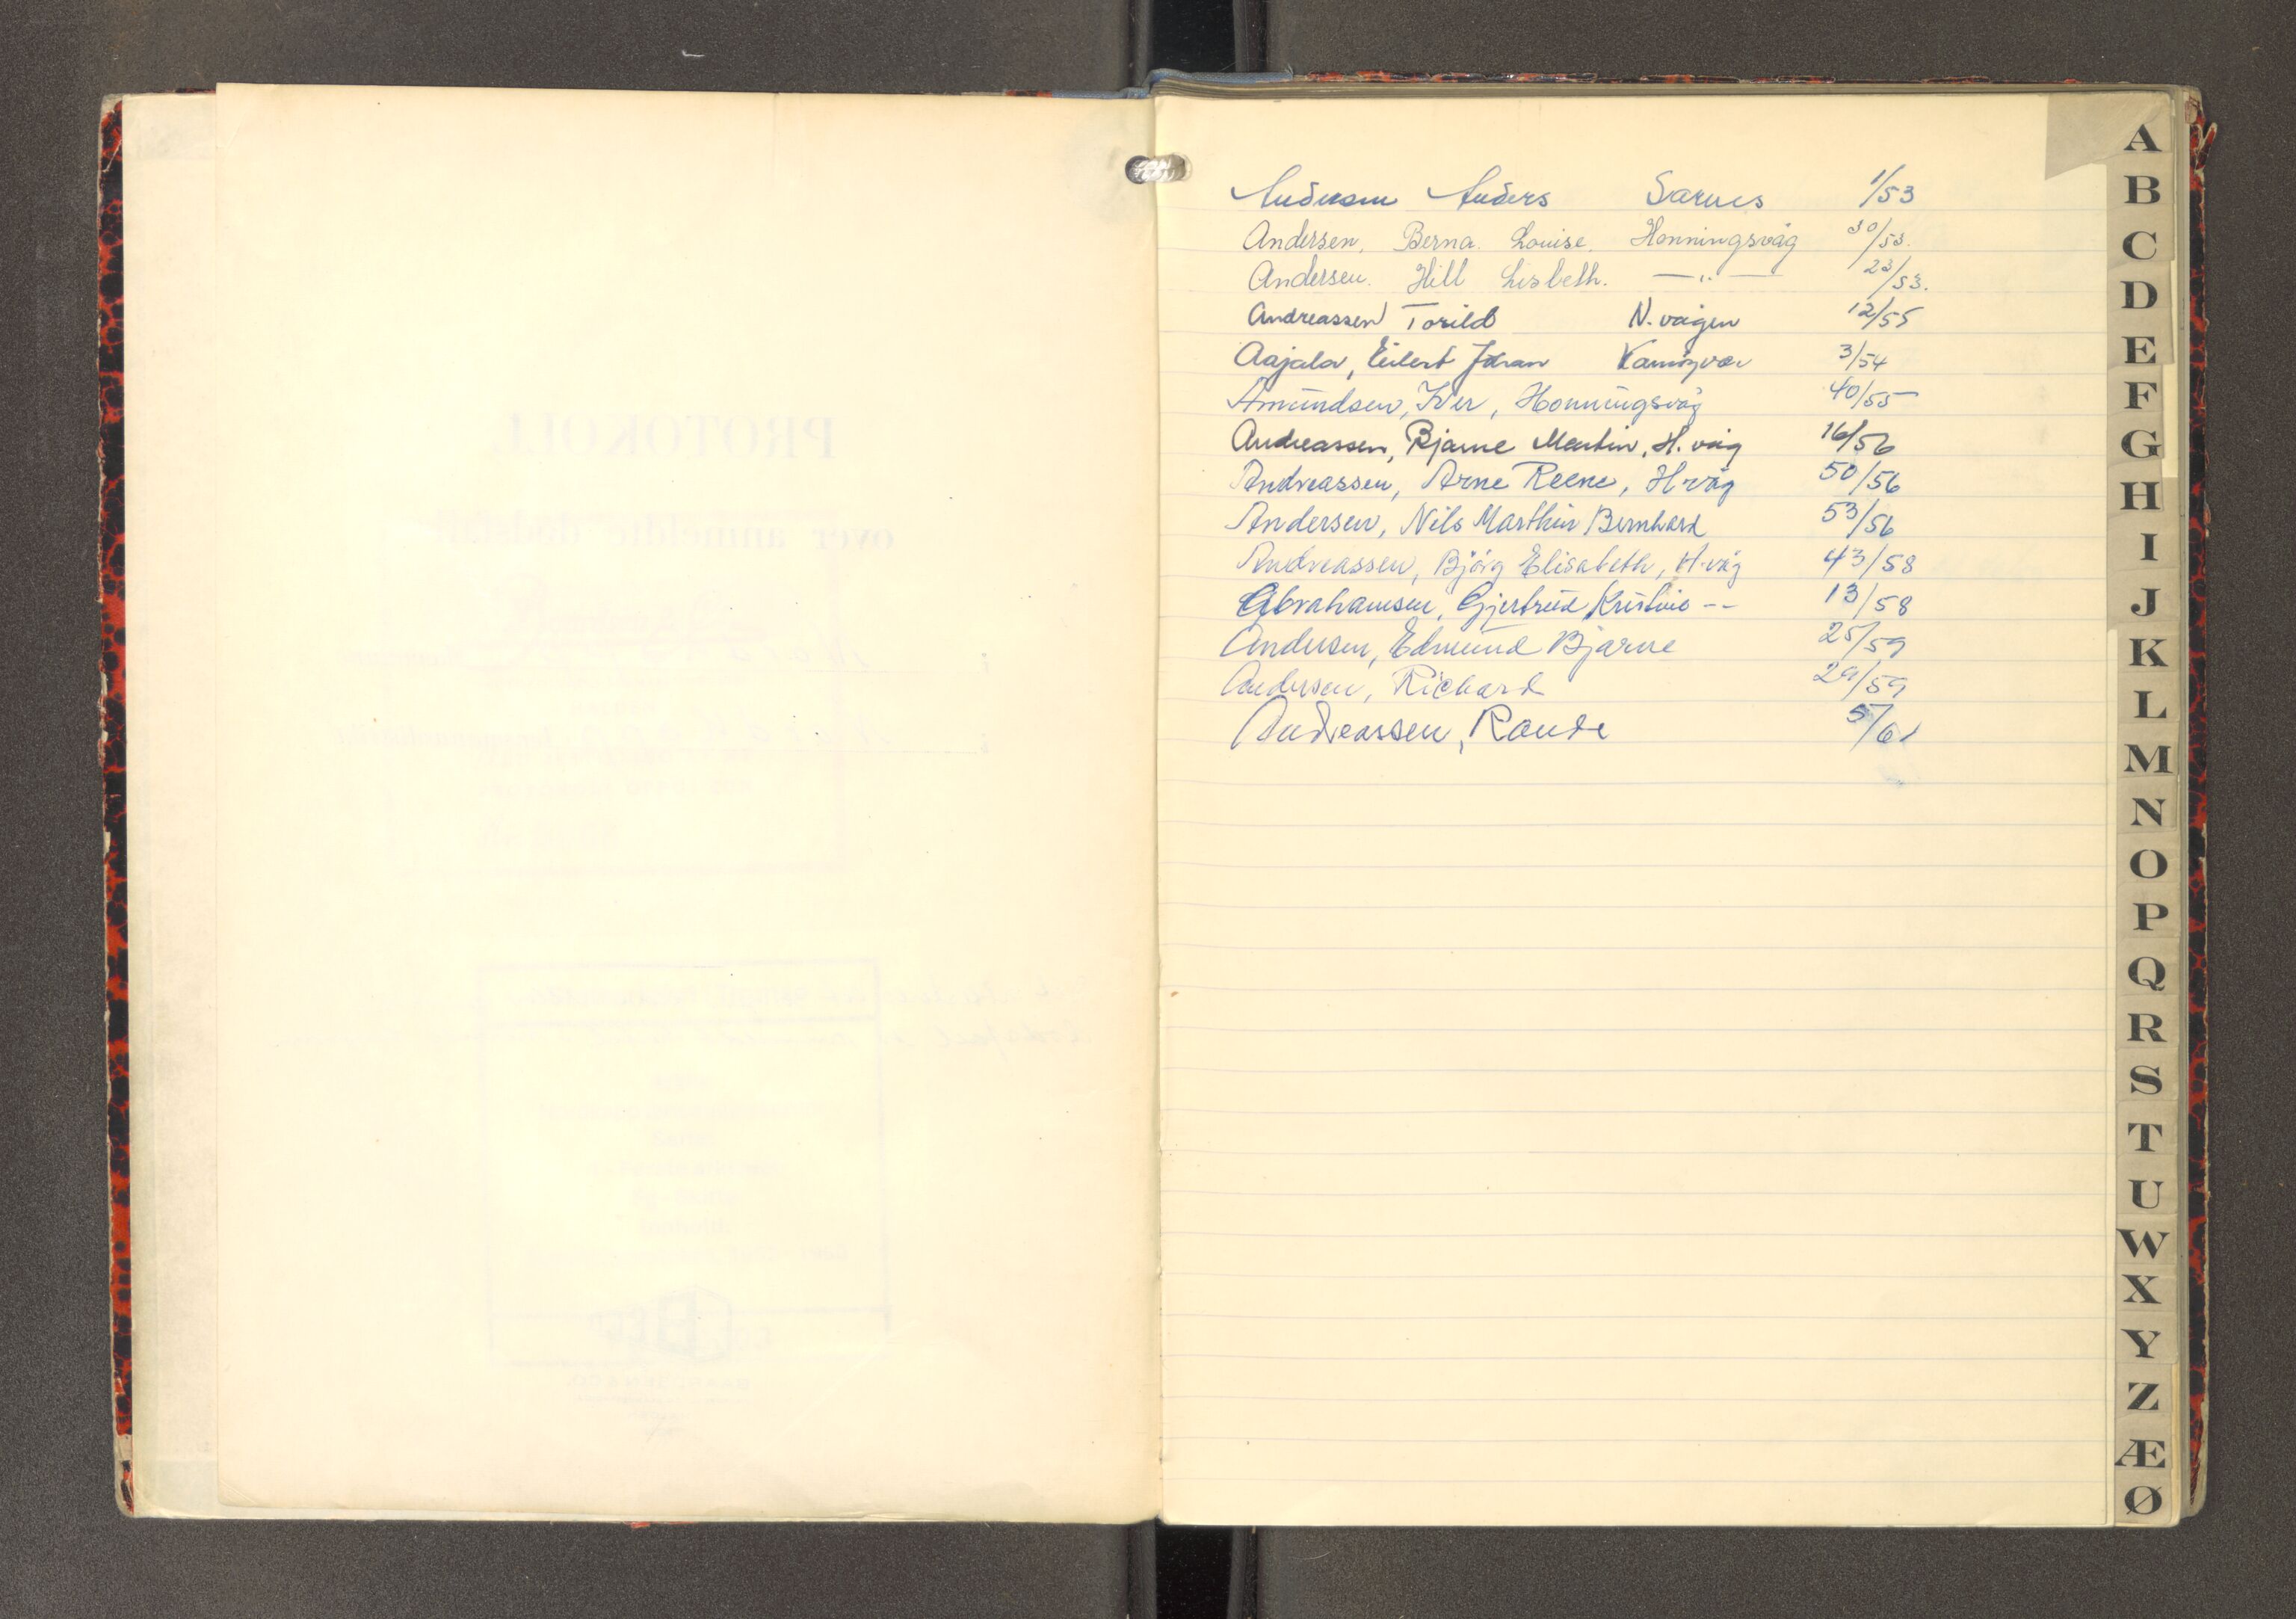 Andersen Anders Sarnes 1/53
Andersen, Berna Louise. Honningsvåg 30/53.
Andersen. Hill Lisbeth. —"— 23/53.
Andreassen Torild N. vågen 12/55
Aajala, Eilert Johan Kamøyvær 3/54
Amundsen, Iver, Honningsvåg 40/55
Andreassen, Bjarne Martin, H. våg 16/56
Andreassen, Arne Reene, H.våg 50/56
Andersen, Nils Marthin Bernhard 53/56
Andreassen, Bjørg Elisabeth, H.våg 43/58
Abrahamsen, Gjertrud Kristine -- 13/58
Andersen, Edmund Bjarne 25/59
Andersen, Richard 29/59
Andreassen, Rande 5/61
A
B
C
D
E
F
G
H
I
J
K
L
M
N
O
P
Q
R
S
T
U
W
X
Y
Z
Æ
Ø
PROTOKOLL
over anmeldte dødsfall
i
i